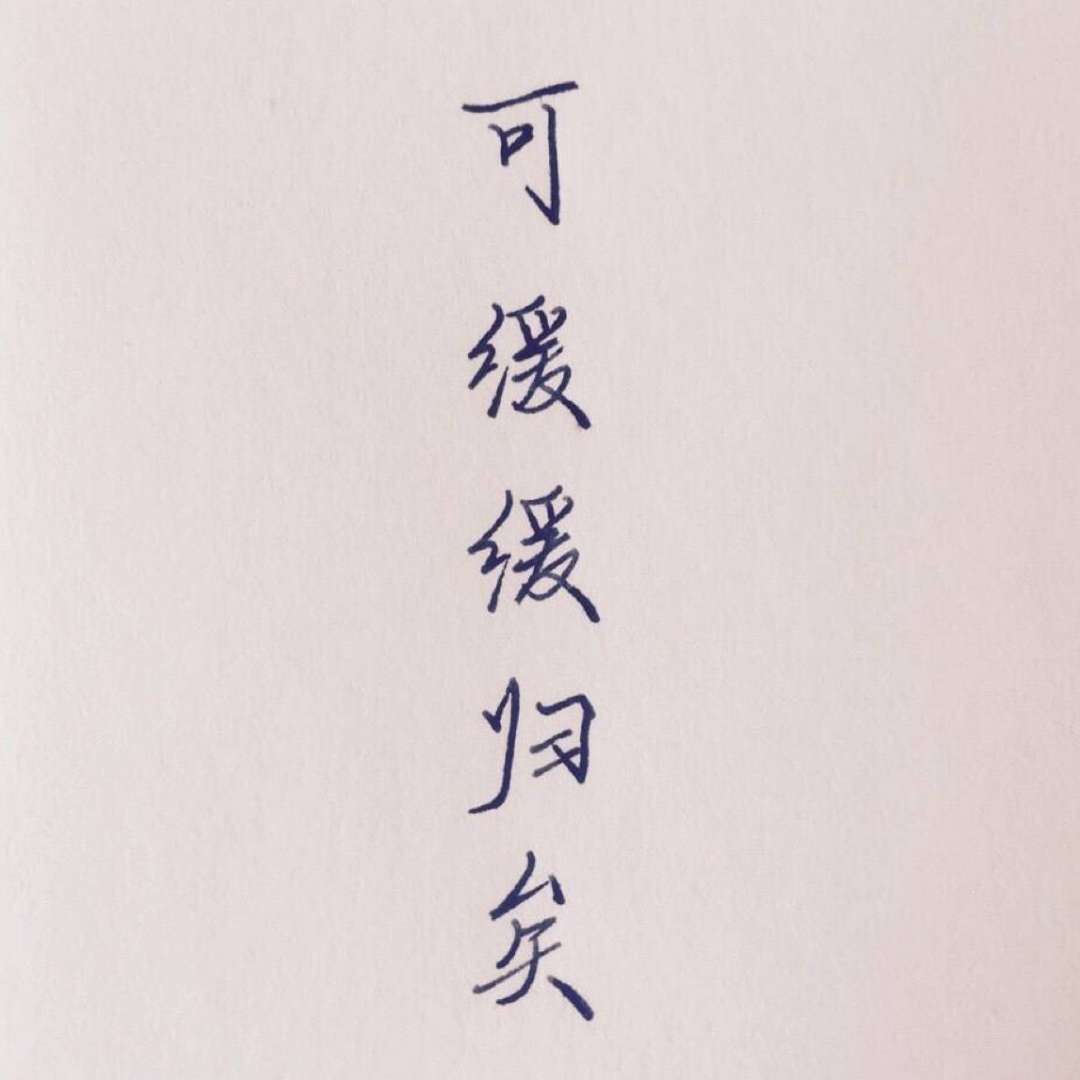 可缓缓归矣